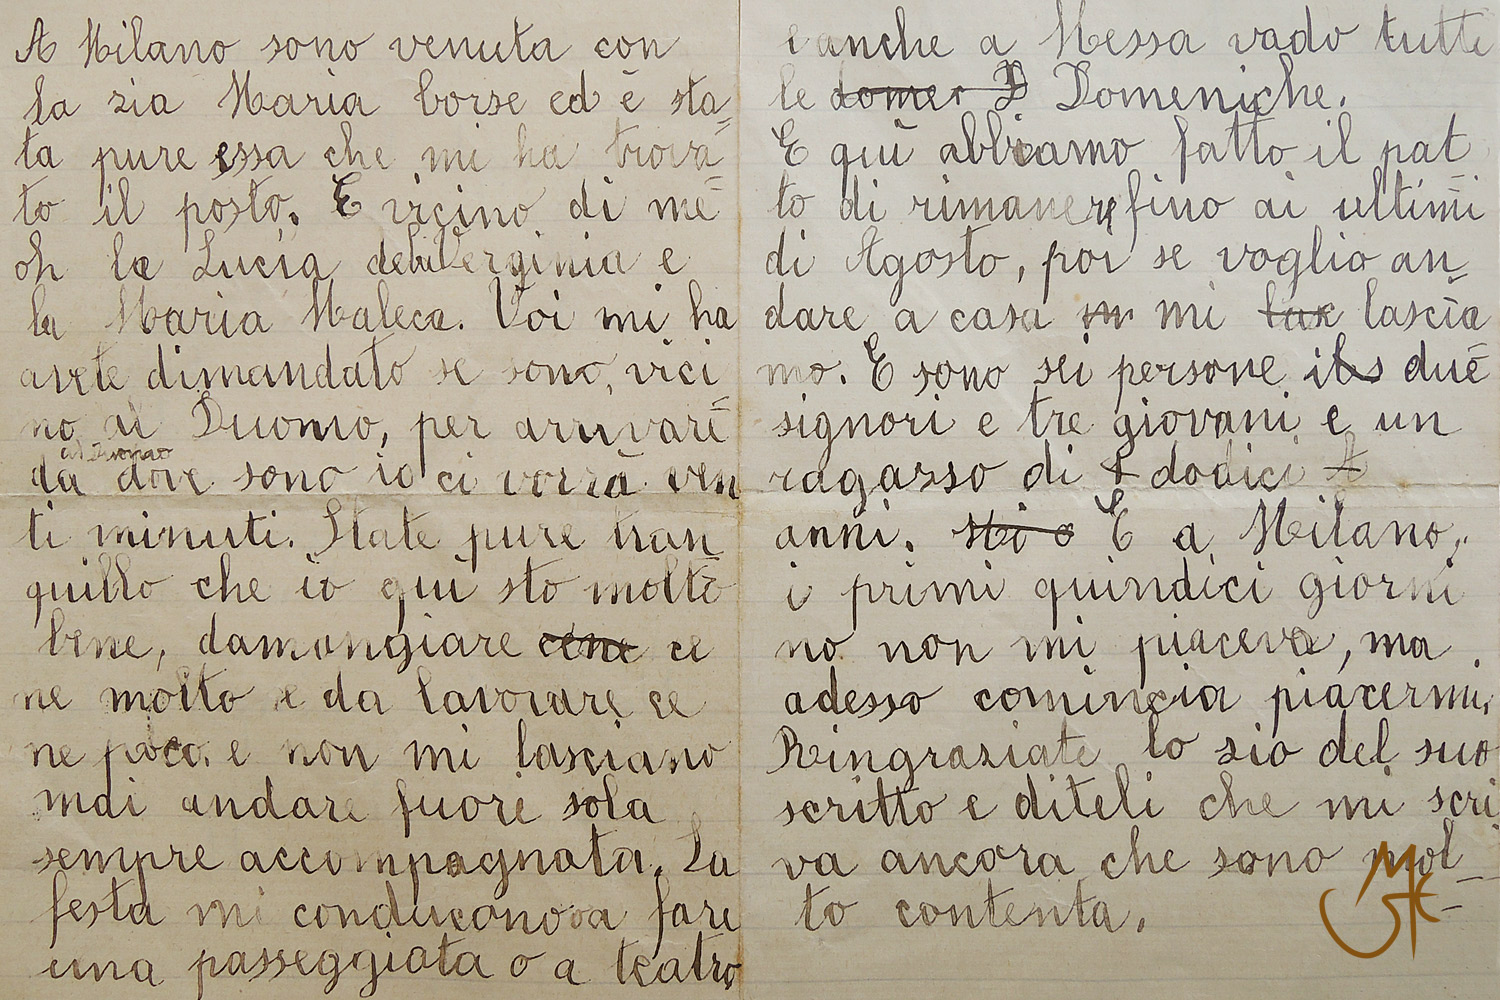 A Milano sono venuta con
la zia Maria borse ed è sta=
ta pure essa che mi ha trova=
to il posto. E vicino di me=
oh la Lucia della Verginia e
la Maria Maleca. Voi mi ha
avete dimandato se sono, vici=
no al Duomo, per arrivare
al Duomo
da dove sono io ci vorrà ven
ti minuti. State pure tran=
quillo che io qui sto molto
bene, damangiare cene ce
ne molto e da lavorare ce
ne poco. e non mi lasciano
mai andare fuori sola
sempre accompagnata. La
festa mi conducono a fare
una passeggiata o a teatro
e anche a Messa vado tutte
le Domeniche.
E qui abbiamo fatto il pat=
to di rimanere fino ai ultimi
di Agosto, poi se voglio an=
dare a casa mi lascia=
mo. E sono sei persone due
signori e tre giovani e un
ragasso di dodici
anni. E a Milano,
i primi quindici giorni
no non mi piaceva, ma
adesso comincia piacermi,
Ringraziate lo zio del suo
scritto e diteli che mi scri
va ancora che sono mol-
to contenta.